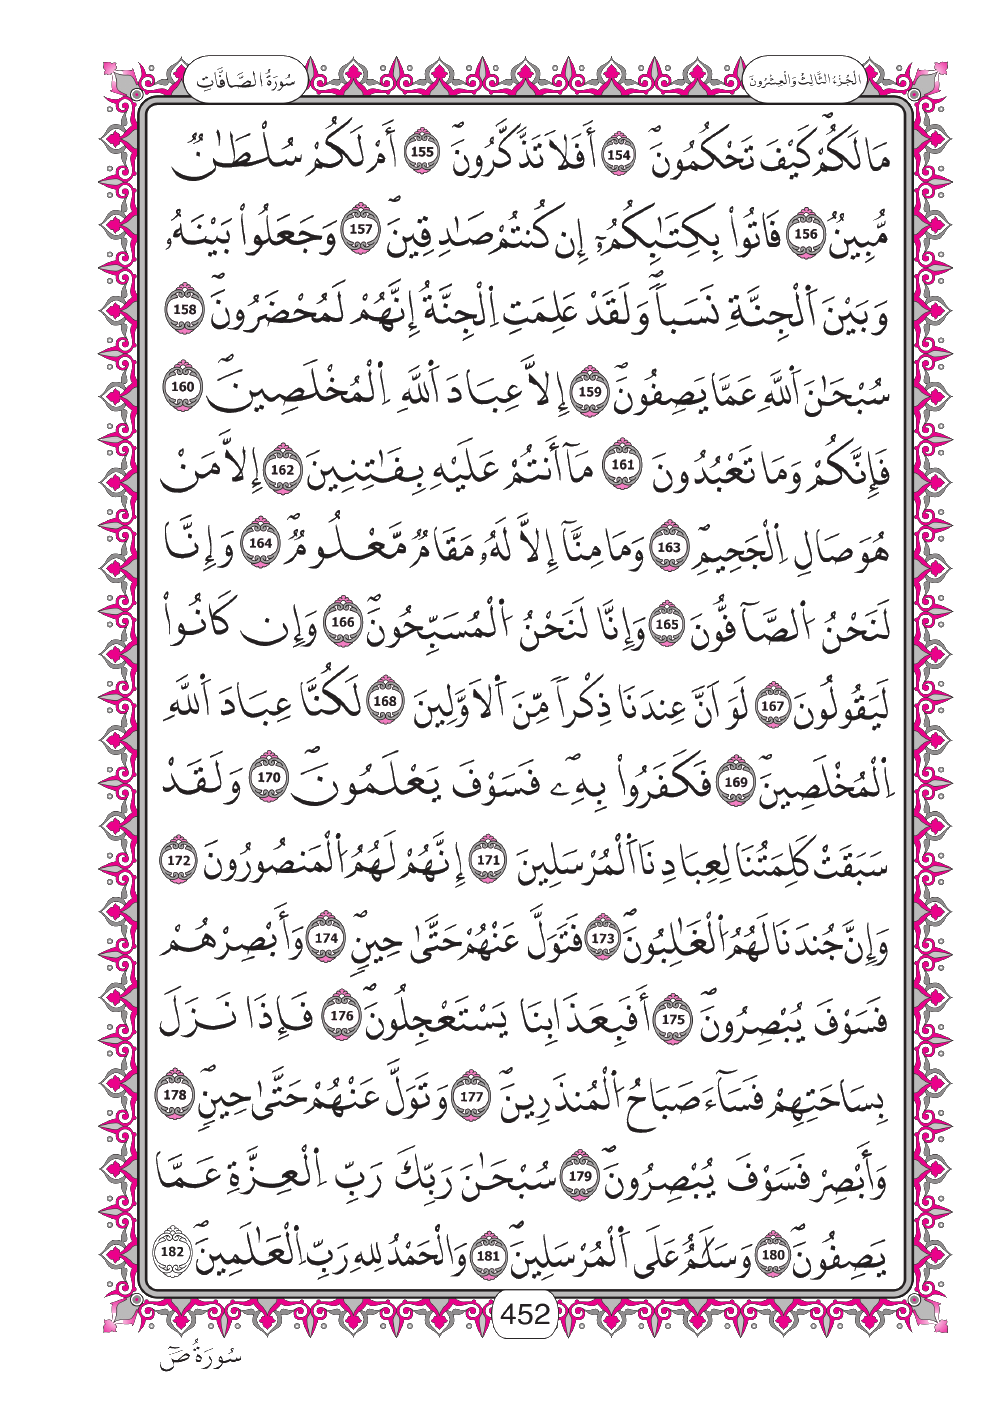 سُورَةُ الصَّافَّاتِ
الْجُزْءُ الثَّالِثُ وَالْعِشْرُونَ
مَا لَكُمْ كَيْفَ تَحْكُمُونَۖ 154 أَفَلَا تَذَّكَّرُونَۖ 155 أَمْ لَكُمْ سُلْطَٰنٌ
مُّبِينٌ 156 فَاتُواْ بِكِتَٰبِكُمُۥٓ إِن كُنتُمْ صَٰدِقِينَۖ 157 وَجَعَلُواْ بَيْنَهُۥ
وَبَيْنَ اَ۬لْجِنَّةِ نَسَباٗۖ وَلَقَدْ عَلِمَتِ اِ۬لْجِنَّةُ إِنَّهُمْ لَمُحْضَرُونَۖ 158
سُبْحَٰنَ اَ۬للَّهِ عَمَّا يَصِفُونَۖ 159 إِلاَّ عِبَادَ اَ۬للَّهِ اِ۬لْمُخْلَصِينَۖ 160
فَإِنَّكُمْ وَمَا تَعْبُدُونَ 161 مَآ أَنتُمْ عَلَيْهِ بِفَٰتِنِينَ 162 إِلاَّ مَنْ
هُوَ صَالِ اِ۬لْجَحِيمِۖ 163 وَمَا مِنَّآ إِلاَّ لَهُۥ مَقَامٌ مَّعْلُومٌۖ 164 وَإِنَّا
لَنَحْنُ اُ۬لصَّآفُّونَ 165 وَإِنَّا لَنَحْنُ اُ۬لْمُسَبِّحُونَۖ 166 وَإِن كَانُواْ
لَيَقُولُونَ 167 لَوَ اَنَّ عِندَنَا ذِكْراٗ مِّنَ اَ۬لَاوَّلِينَ 168 لَكُنَّا عِبَادَ اَ۬للَّهِ
اِ۬لْمُخْلَصِينَۖ 169 فَكَفَرُواْ بِهِۦۖ فَسَوْفَ يَعْلَمُونَۖ 170 وَلَقَدْ
سَبَقَتْ كَلِمَتُنَا لِعِبَادِنَا اَ۬لْمُرْسَلِينَ 171 إِنَّهُمْ لَهُمُ اُ۬لْمَنصُورُونَ 172
وَإِنَّ جُندَنَا لَهُمُ اُ۬لْغَٰلِبُونَۖ 173 فَتَوَلَّ عَنْهُمْ حَتَّىٰ حِينٖۖ 174 وَأَبْصِرْهُمْ
فَسَوْفَ يُبْصِرُونَۖ 175 أَفَبِعَذَابِنَا يَسْتَعْجِلُونَۖ 176 فَإِذَا نَزَلَ
بِسَاحَتِهِمْ فَسَآءَ صَبَاحُ اُ۬لْمُنذَرِينَۖ 177 وَتَوَلَّ عَنْهُمْ حَتَّىٰ حِينٖۖ 178
وَأَبْصِرْ فَسَوْفَ يُبْصِرُونَۖ 179 سُبْحَٰنَ رَبِّكَ رَبِّ اِ۬لْعِزَّةِ عَمَّا
يَصِفُونَۖ 180 وَسَلَٰمٌ عَلَى اَ۬لْمُرْسَلِينَۖ 181 وَالْحَمْدُ لِلهِ رَبِّ اِ۬لْعَٰلَمِينَۖ 182
452
سُورَةُ صٓ